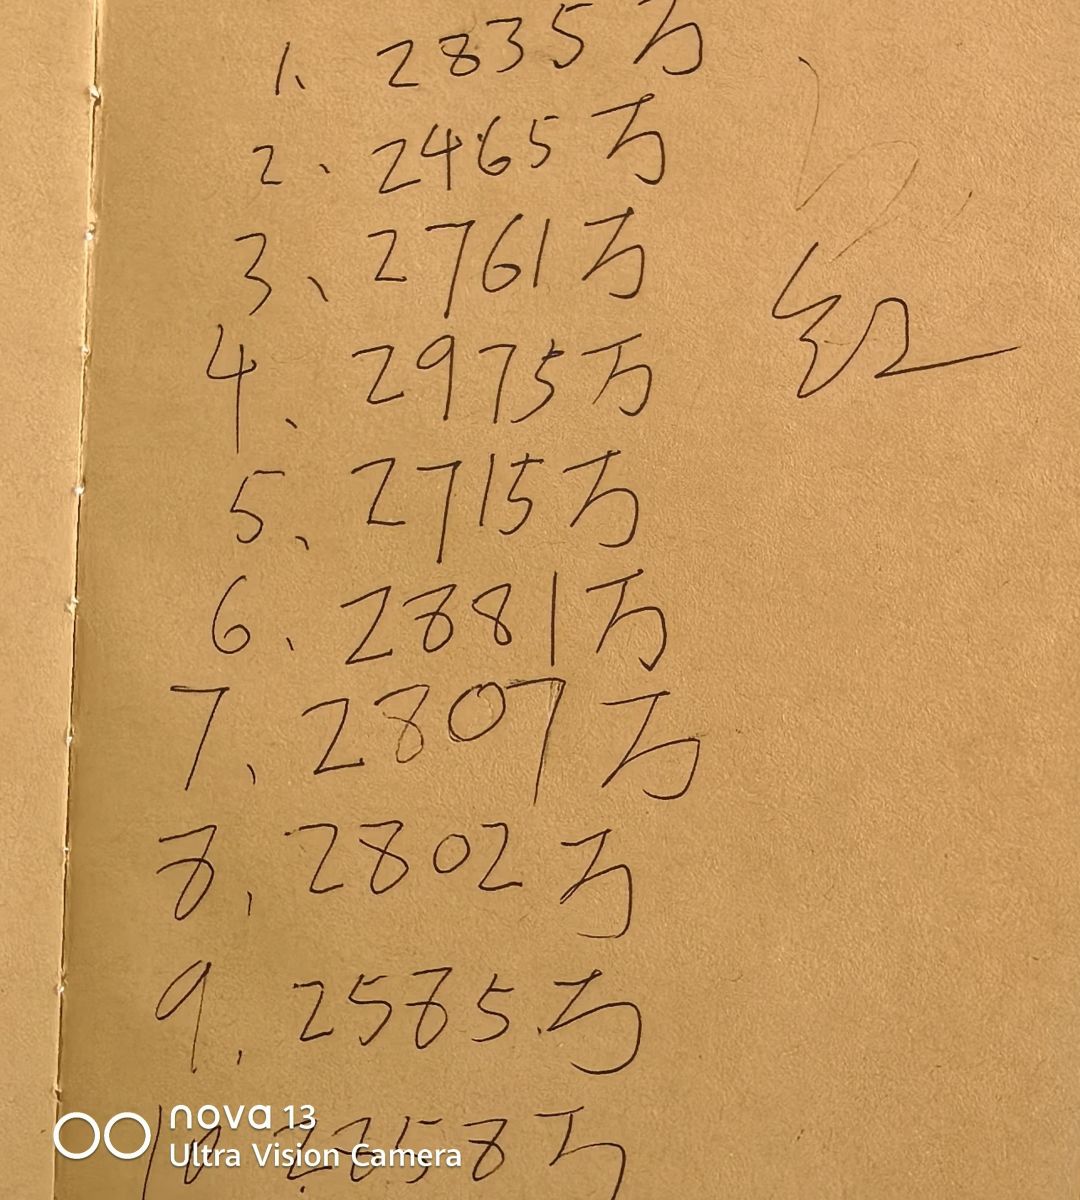 1、2835万
2、2465万
3、2761万
4、2975万
红
5、2715万
6、2881万
7、2807万
8、2802万
9、2585万
10、2858万
nova 13
Ultra Vision Camera